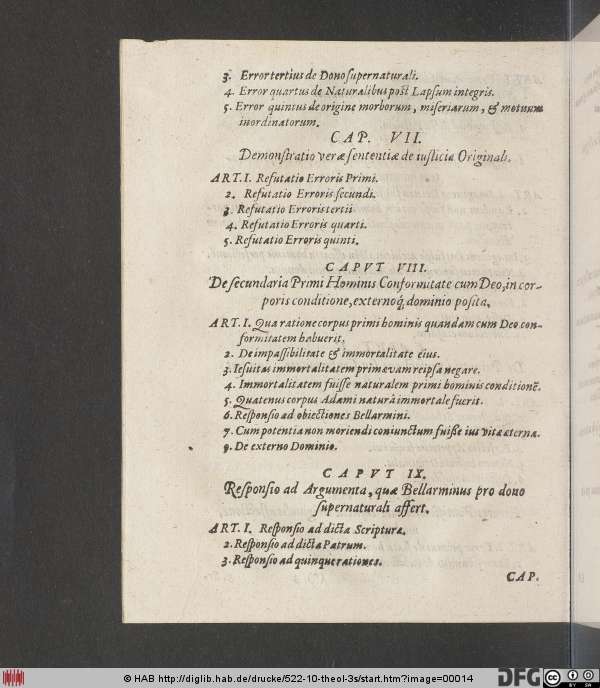 3. Error tertius de Dono supernaturali.
4. Error quartus de Naturalibus post Lapsum integris.
5. Error quintus de origine morborum, miseriarum, & motuum
inordinatorum.
CAP. VII.
Demonstratio veræ sententiæ de iusticia Originali.
ART. I. Refutatio Erroris Primi.
2. Refutatio Erroris secundi.
3. Refutatio Erroris tertii
4. Refutatio Erroris quarti.
5. Refutatio Erroris quinti.
CAPVT VIII.
De secundaria Primi Hominis Conformitate cum Deo, in cor-
poris conditione, externoq́, dominio posita.
ART. I. Qua ratione corpus primi hominis quandam cum Deo con-
formitatem habuerit.
2. De impassibilitate & immortalitate eius.
3. Iesuitas immortalitatem primævam reipsa negare.
4. Immortalitatem fuisse naturalem primi hominis conditionē.
5. Quatenus corpus Adami naturà immortale fuerit.
6. Responsio ad obiectiones Bellarmini.
7. Cum potentia non moriendi coniunctum fuisse ius vitæ æternæ.
9. De externo Dominio.
CAPVT IX.
Responsio ad Argumenta, quæ Bellarminus pro dono
supernaturali affert.
ART. I. Responsio ad dicta Scripturæ.
2. Responsio ad dicta Patrum.
3. Responsio ad quinque rationes.
CAP.
© HAB http://diglib.hab.de/drucke/522-10-theol-3s/start.htm?image=00014
DFG
CC BY SA